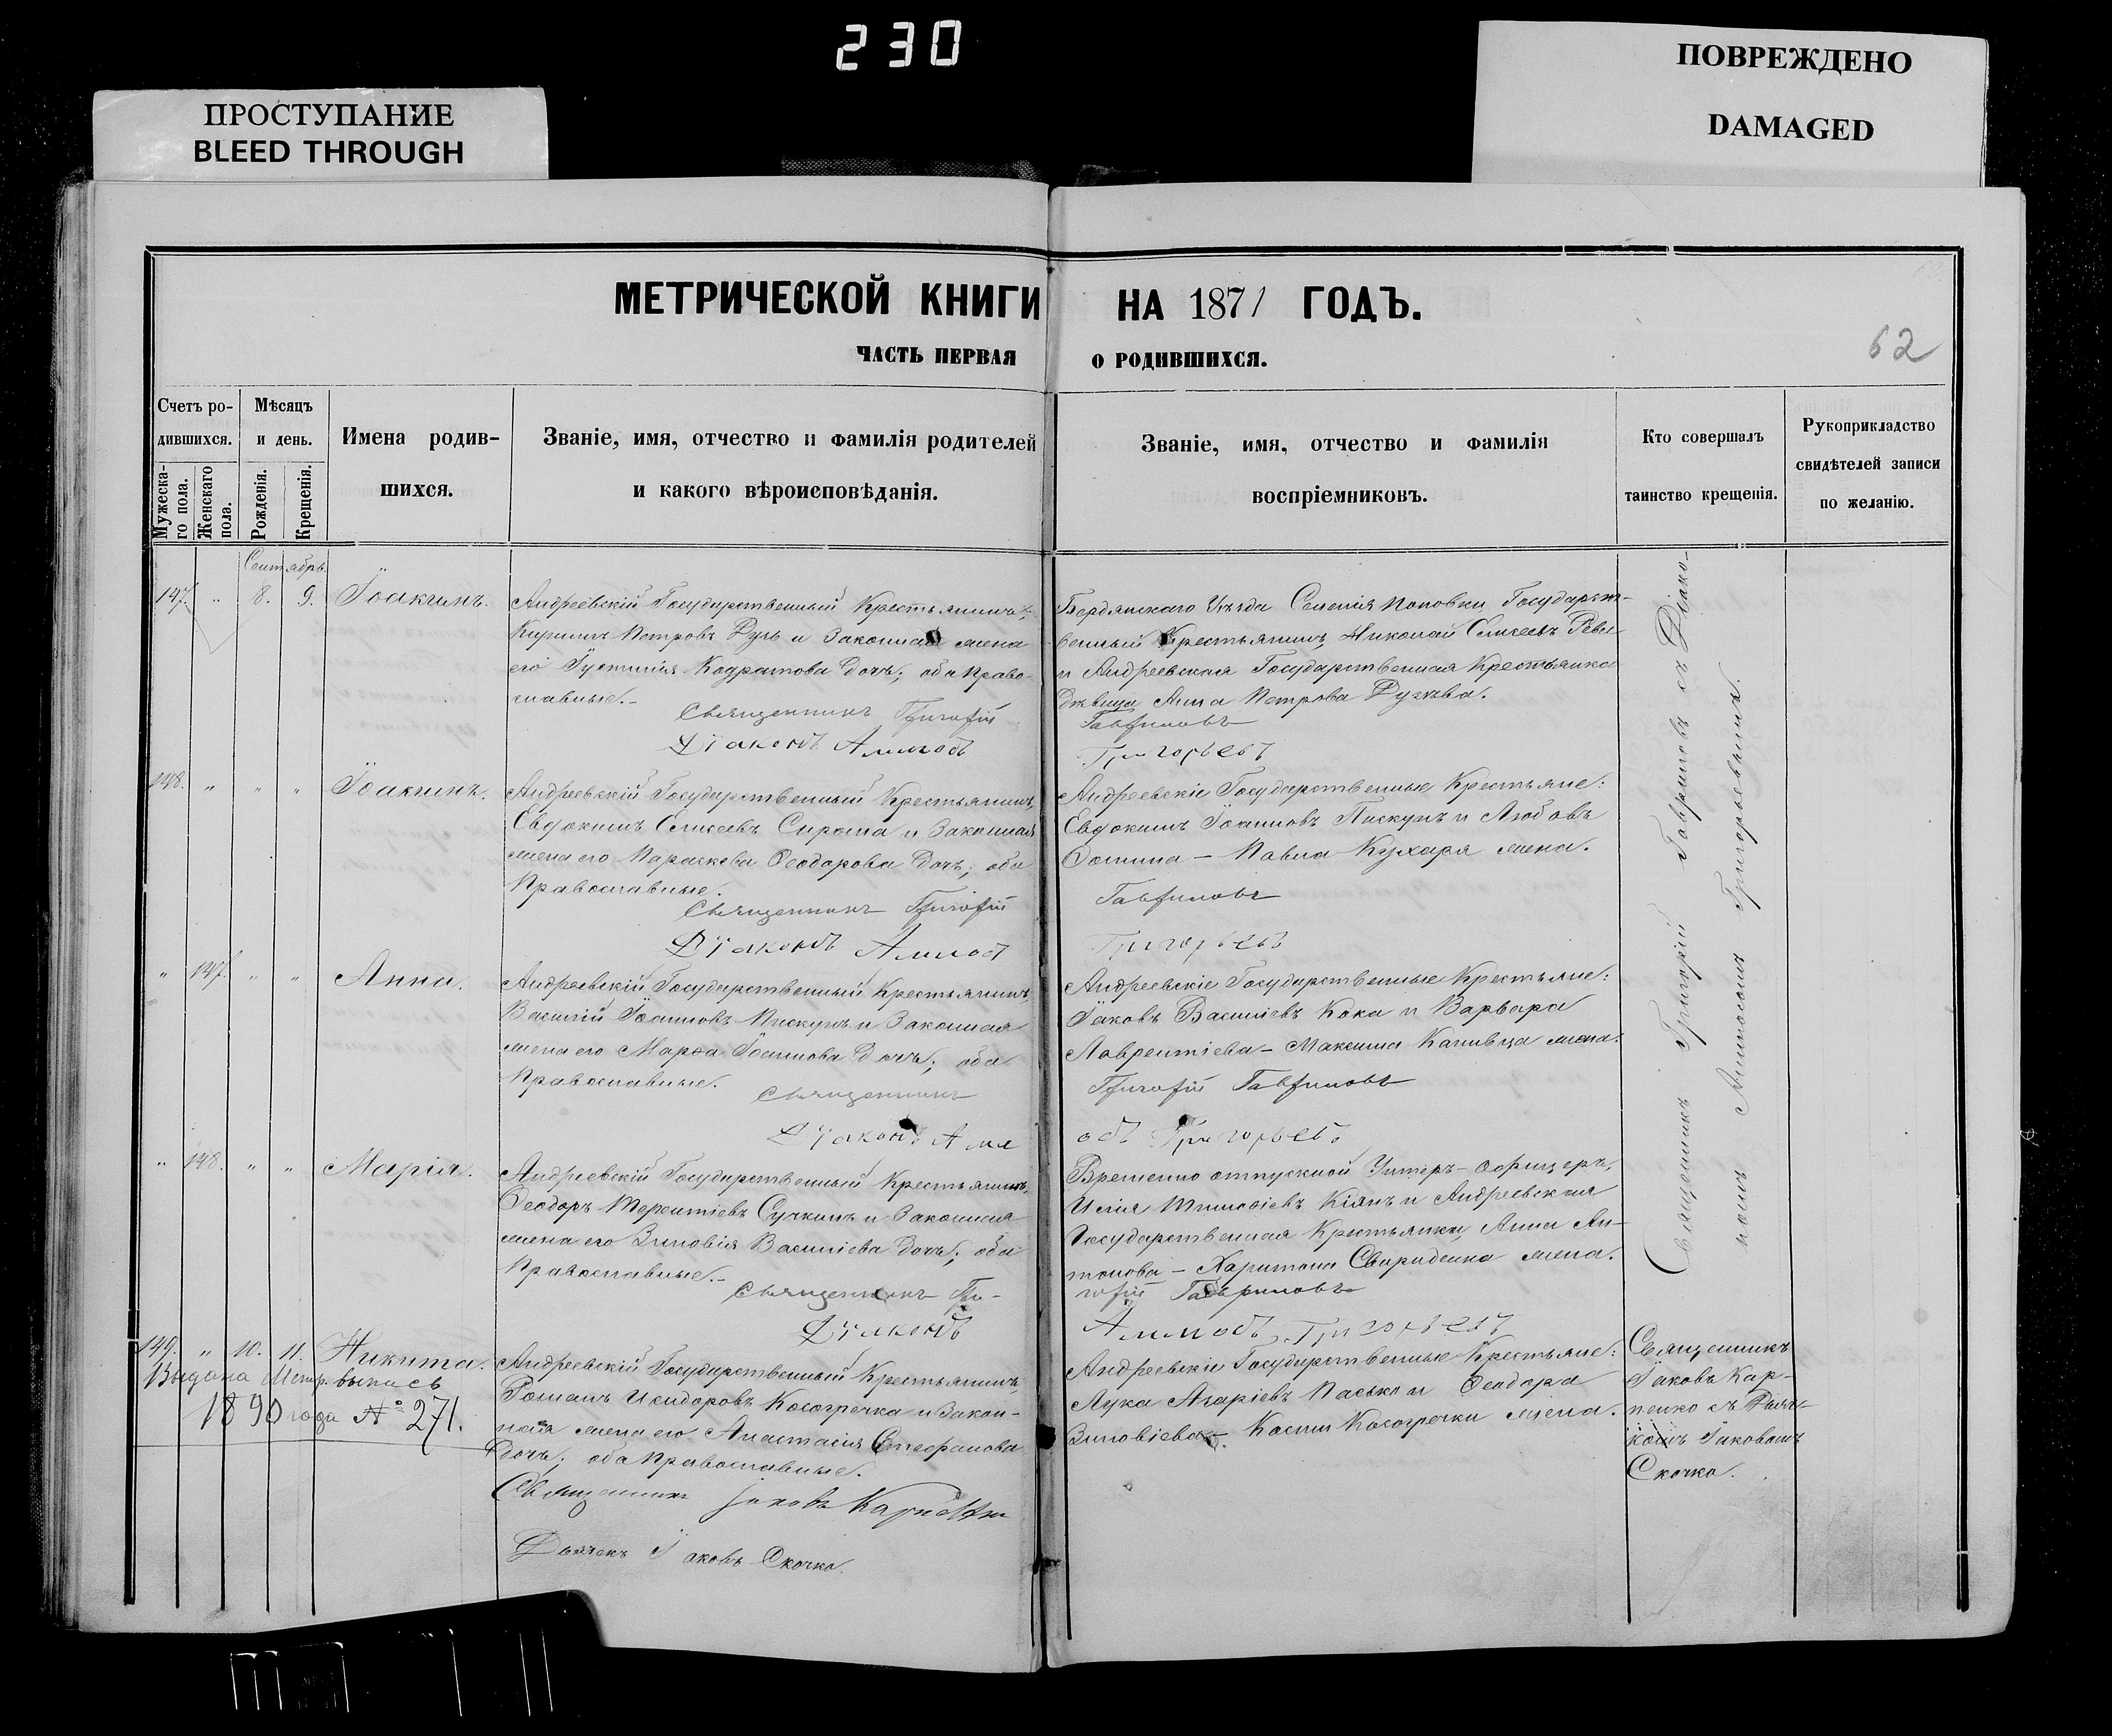 230
ПРОСТУПАНИЕ
BLEED THROUGH
ПОВРЕЖДЕНО
DAMAGED
МЕТРИЧЕСКОЙ КНИГИ НА 1871 ГОДЪ.
ЧАСТЬ ПЕРВАЯ О РОДИВШИХСЯ.
62
Счетъ ро-
дившихся.
Мужеска-
го пола.
Женскаго
пола.
Мѣсяцъ
и день.
Рожденія.
Крещенія.
Имена родив-
шихся.
Званіе, имя, отчество и фамилія родителей
и какого вѣроисповѣданія.
Званіе, имя, отчество и фамилія
воспріемниковъ.
Кто совершалъ
таинство крещенія.
Рукоприкладство
свидѣтелей записи
по желанію.
Сентябрь
147. " 8. 9. Іоакимъ.
Андреевскій Государственный Крестьянинъ,
Кириллъ Петровъ и Законная жена
его Іустинія Кодратова дочь; оба право
славные.-
Священникъ Григорій Гавриловъ
Діаконъ Аммосъ Григорьевъ
Бердянскаго Уѣзда Селенія Поповки Государст-
венный Крестьянинъ, Николай Елисеевъ
и Андреевская Государственная Крестьянка
Дѣвица Анна Петрова
148. " " " Іоакимъ.
Андреевскій Государственный Крестьянинъ,
Евдокимъ Елисеевъ Сирота и Законная
жена его Параскева Ѳеодорова дочь; оба
Православные.
Священникъ Григорій Гавриловъ
Діаконъ Аммосъ Григорьевъ
Андреевскіе Государственные Крестьяне:
Евдокимъ Іоанновъ Пискунъ и Любовь
Ѳомина - Павла Кухаря жена.
" 147. " " Анна.
Андреевскій Государственный Крестьянинъ,
Василій Іоанновъ Пискунъ и Законная
жена его Марѳа Іоаннова дочь; оба
Православные.
Священникъ Григорій Гавриловъ
Діаконъ Аммосъ Григорьевъ
Андреевскіе Государственные Крестьяне:
Іаковъ Васильевъ Кока и Варвара
Лаврентіева - Максима Канивца жена.
" 148. " " Марія.
Андреевскій Государственный Крестьянинъ,
Ѳеодоръ Терентіевъ Сучкинъ и Законная
жена его Зиновія Василіева дочь; оба
Православные.-
Священникъ Григорій Гавриловъ
Діаконъ Аммосъ Григорьевъ
Временно отпускной Унтеръ-офицеръ,
Илія Тимоѳіевъ Кіянъ и Андреевская
Государственная Крестьянка, Анна Ан-
тонова - Харитона Свириденка жена.
Священникъ Григорій Гавриловъ съ Діако-
номъ Аммосомъ Григорьевымъ.
149. " 10. 11. Никита.
Выдана Метр. выпись
1890 года № 271.
Андреевскій Государственный Крестьянинъ,
Романъ Исидоровъ Косогречка и Закон-
ная жена его Анастасія Стефанова
дочь; оба Православные.
Священникъ Іаковъ Карпенко
Дьячекъ Іаковъ Скочко.
Андреевскіе Государственные Крестьяне:
Лука Агаріевъ Пасько и Ѳеодора
Зиновіева - Космы Косогречки жена.
Священникъ
Іаковъ Кар-
пенко съ Дьяч-
комъ Іаковомъ
Скочко.